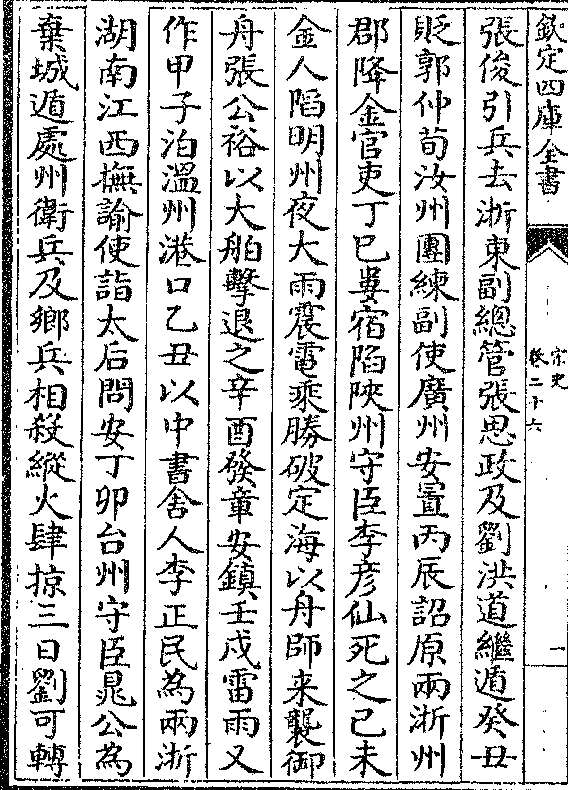 欽定四庫全書
宋史
卷二十六
一
張俊引兵去浙東副總管張思政及劉洪道繼遁癸丑
貶郭仲荀汝州團練副使廣州安置丙辰詔原兩浙州
郡降金官吏丁巳婁宿陷陝州守臣李彦仙死之己未
金人陷明州夜大雨震電乘勝破定海以舟師来襲御
舟張公裕以大舶擊退之辛酉發章安鎮壬戌雷雨又
作甲子泊溫州港口乙丑以中書舍人李正民為兩浙
湖南江西撫諭使詣太后問安丁卯台州守臣晁公為
棄城遁處州衛兵及鄉兵相殺縱火肆掠三日劉可轉